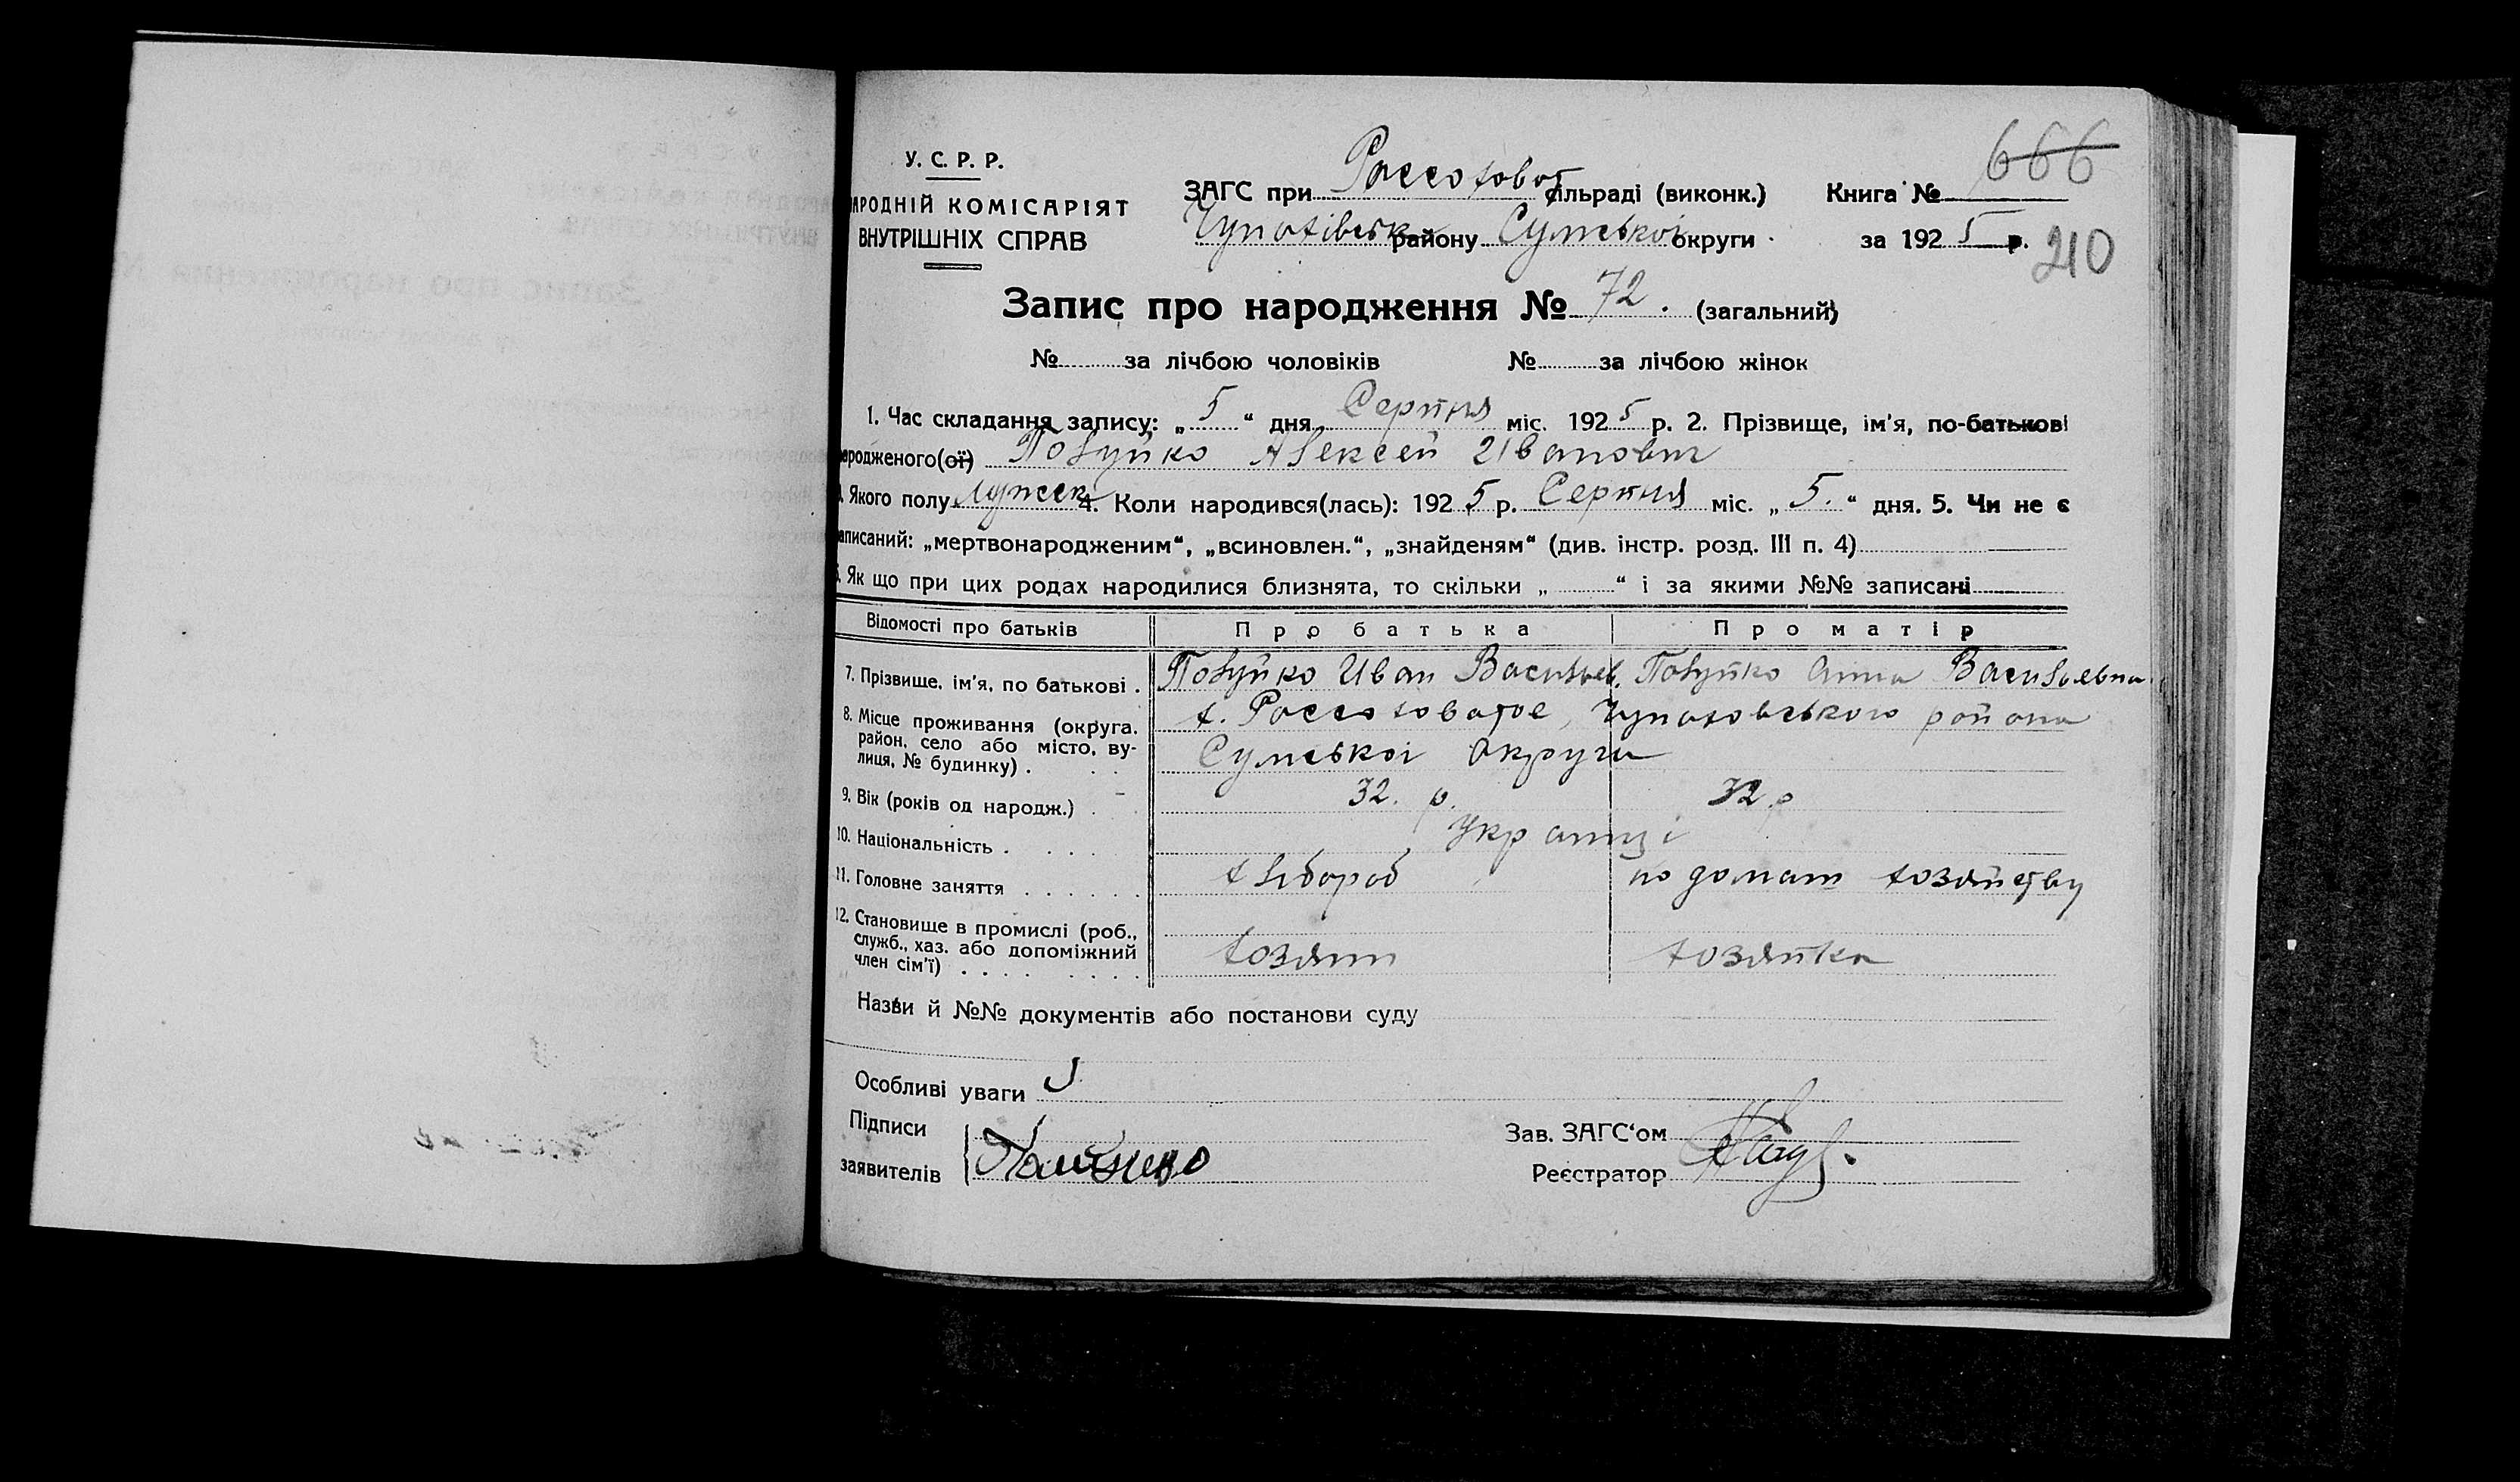 У. С. Р. Р.
АРОДНІЙ КОМІСАРІЯТ
ВНУТРІШНІХ СПРАВ
ЗАГС при Россохово сільраді (виконк.)
Чупахівськ району Сумської округи
Книга № 666
за 1925 р. 210
Запис про народження № 72. (загальний)
№ за лічбою чоловіків № за лічбою жінок
1. Час складання запису: „5“ дня Серпня міс. 1925 р. 2. Прізвище, ім'я, по-батькові
ародженого(ої) Полуйко Алексей Иванович
Якого полу мужск 4. Коли народився(лась): 1925 р. Серпня міс. „5.“ дня. 5. Чи не є
аписаний: „мертвонародженим“, „всиновлен.“, „знайденям“ (див. інстр. розд. III п. 4)
Як що при цих родах народилися близнята, то скільки „ “ і за якими №№ записані
Відомості про батьків Про батька Про матір
7. Прізвище, ім'я, по батькові . Полуйко Иван Васильев. Полуйко Анна Васильевна
8. Місце проживання (округа, район, село або місто, вулиця, № будинку) . х. Россоховатое, Чупаховського района
Сумської округи
9. Вік (років од народж.) 32. р. 32 р
10. Національність . Українці
11. Головне заняття хлібороб по домаш хозяйству
12. Становище в промислі (роб., служб., хаз. або допоміжний член сім'ї) хозяин хозяйка
Назви й №№ документів або постанови суду
Особливі уваги
Підписи
заявителів
Зав. ЗАГС'ом
Реєстратор